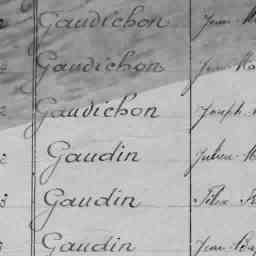 2 Gaudichon Jean M
4 Gaudichon Jean Ma
2 Gauvichon Joseph
2 Gaudin Julien M
3 Gaudin Félix
Gaudin Jean Bap